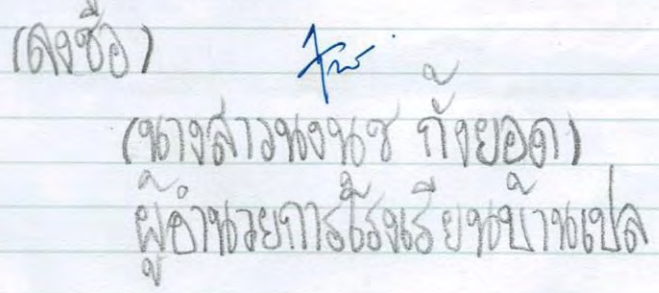 (ลงชื่อ)
(นางสาวนงนุช กั้งยอด)
ผู้อำนวยการโรงเรียนบ้านเปล